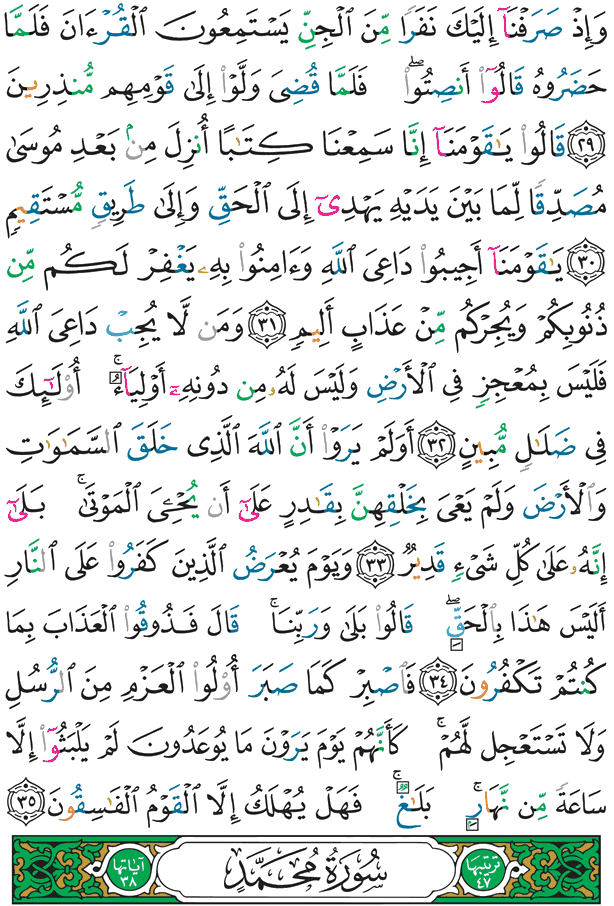 وَإِذۡ صَرَفۡنَآ إِلَيۡكَ نَفَرٗا مِّنَ ٱلۡجِنِّ يَسۡتَمِعُونَ ٱلۡقُرۡءَانَ فَلَمَّا
حَضَرُوهُ قَالُوٓاْ أَنصِتُواْۖ فَلَمَّا قُضِيَ وَلَّوۡاْ إِلَىٰ قَوۡمِهِم مُّنذِرِينَ
٢٩ قَالُواْ يَٰقَوۡمَنَآ إِنَّا سَمِعۡنَا كِتَٰبًا أُنزِلَ مِنۢ بَعۡدِ مُوسَىٰ
مُصَدِّقٗا لِّمَا بَيۡنَ يَدَيۡهِ يَهۡدِيٓ إِلَى ٱلۡحَقِّ وَإِلَىٰ طَرِيقٖ مُّسۡتَقِيمٖ
٣٠ يَٰقَوۡمَنَآ أَجِيبُواْ دَاعِيَ ٱللَّهِ وَءَامِنُواْ بِهِۦ يَغۡفِرۡ لَكُم مِّن
ذُنُوبِكُمۡ وَيُجِرۡكُم مِّنۡ عَذَابٍ أَلِيمٖ ٣١ وَمَن لَّا يُجِبۡ دَاعِيَ ٱللَّهِ
فَلَيۡسَ بِمُعۡجِزٖ فِي ٱلۡأَرۡضِ وَلَيۡسَ لَهُۥ مِن دُونِهِۦٓ أَوۡلِيَآءُۚ أُوْلَٰٓئِكَ
فِي ضَلَٰلٖ مُّبِينٍ ٣٢ أَوَلَمۡ يَرَوۡاْ أَنَّ ٱللَّهَ ٱلَّذِي خَلَقَ ٱلسَّمَٰوَٰتِ
وَٱلۡأَرۡضَ وَلَمۡ يَعۡيَ بِخَلۡقِهِنَّ بِقَٰدِرٍ عَلَىٰٓ أَن يُحۡـِۧيَ ٱلۡمَوۡتَىٰۚ بَلَىٰٓ
إِنَّهُۥ عَلَىٰ كُلِّ شَيۡءٖ قَدِيرٞ ٣٣ وَيَوۡمَ يُعۡرَضُ ٱلَّذِينَ كَفَرُواْ عَلَى ٱلنَّارِ
أَلَيۡسَ هَٰذَا بِٱلۡحَقِّۖ قَالُواْ بَلَىٰ وَرَبِّنَاۚ قَالَ فَذُوقُواْ ٱلۡعَذَابَ بِمَا
كُنتُمۡ تَكۡفُرُونَ ٣٤ فَٱصۡبِرۡ كَمَا صَبَرَ أُوْلُواْ ٱلۡعَزۡمِ مِنَ ٱلرُّسُلِ
وَلَا تَسۡتَعۡجِل لَّهُمۡۚ كَأَنَّهُمۡ يَوۡمَ يَرَوۡنَ مَا يُوعَدُونَ لَمۡ يَلۡبَثُوٓاْ إِلَّا
سَاعَةٗ مِّن نَّهَارِۭۚ بَلَٰغٞۚ فَهَلۡ يُهۡلَكُ إِلَّا ٱلۡقَوۡمُ ٱلۡفَٰسِقُونَ ٣٥
ترتيبها ٤٧ سُورَةُ مُحَمَّدٍ آياتها ٣٨